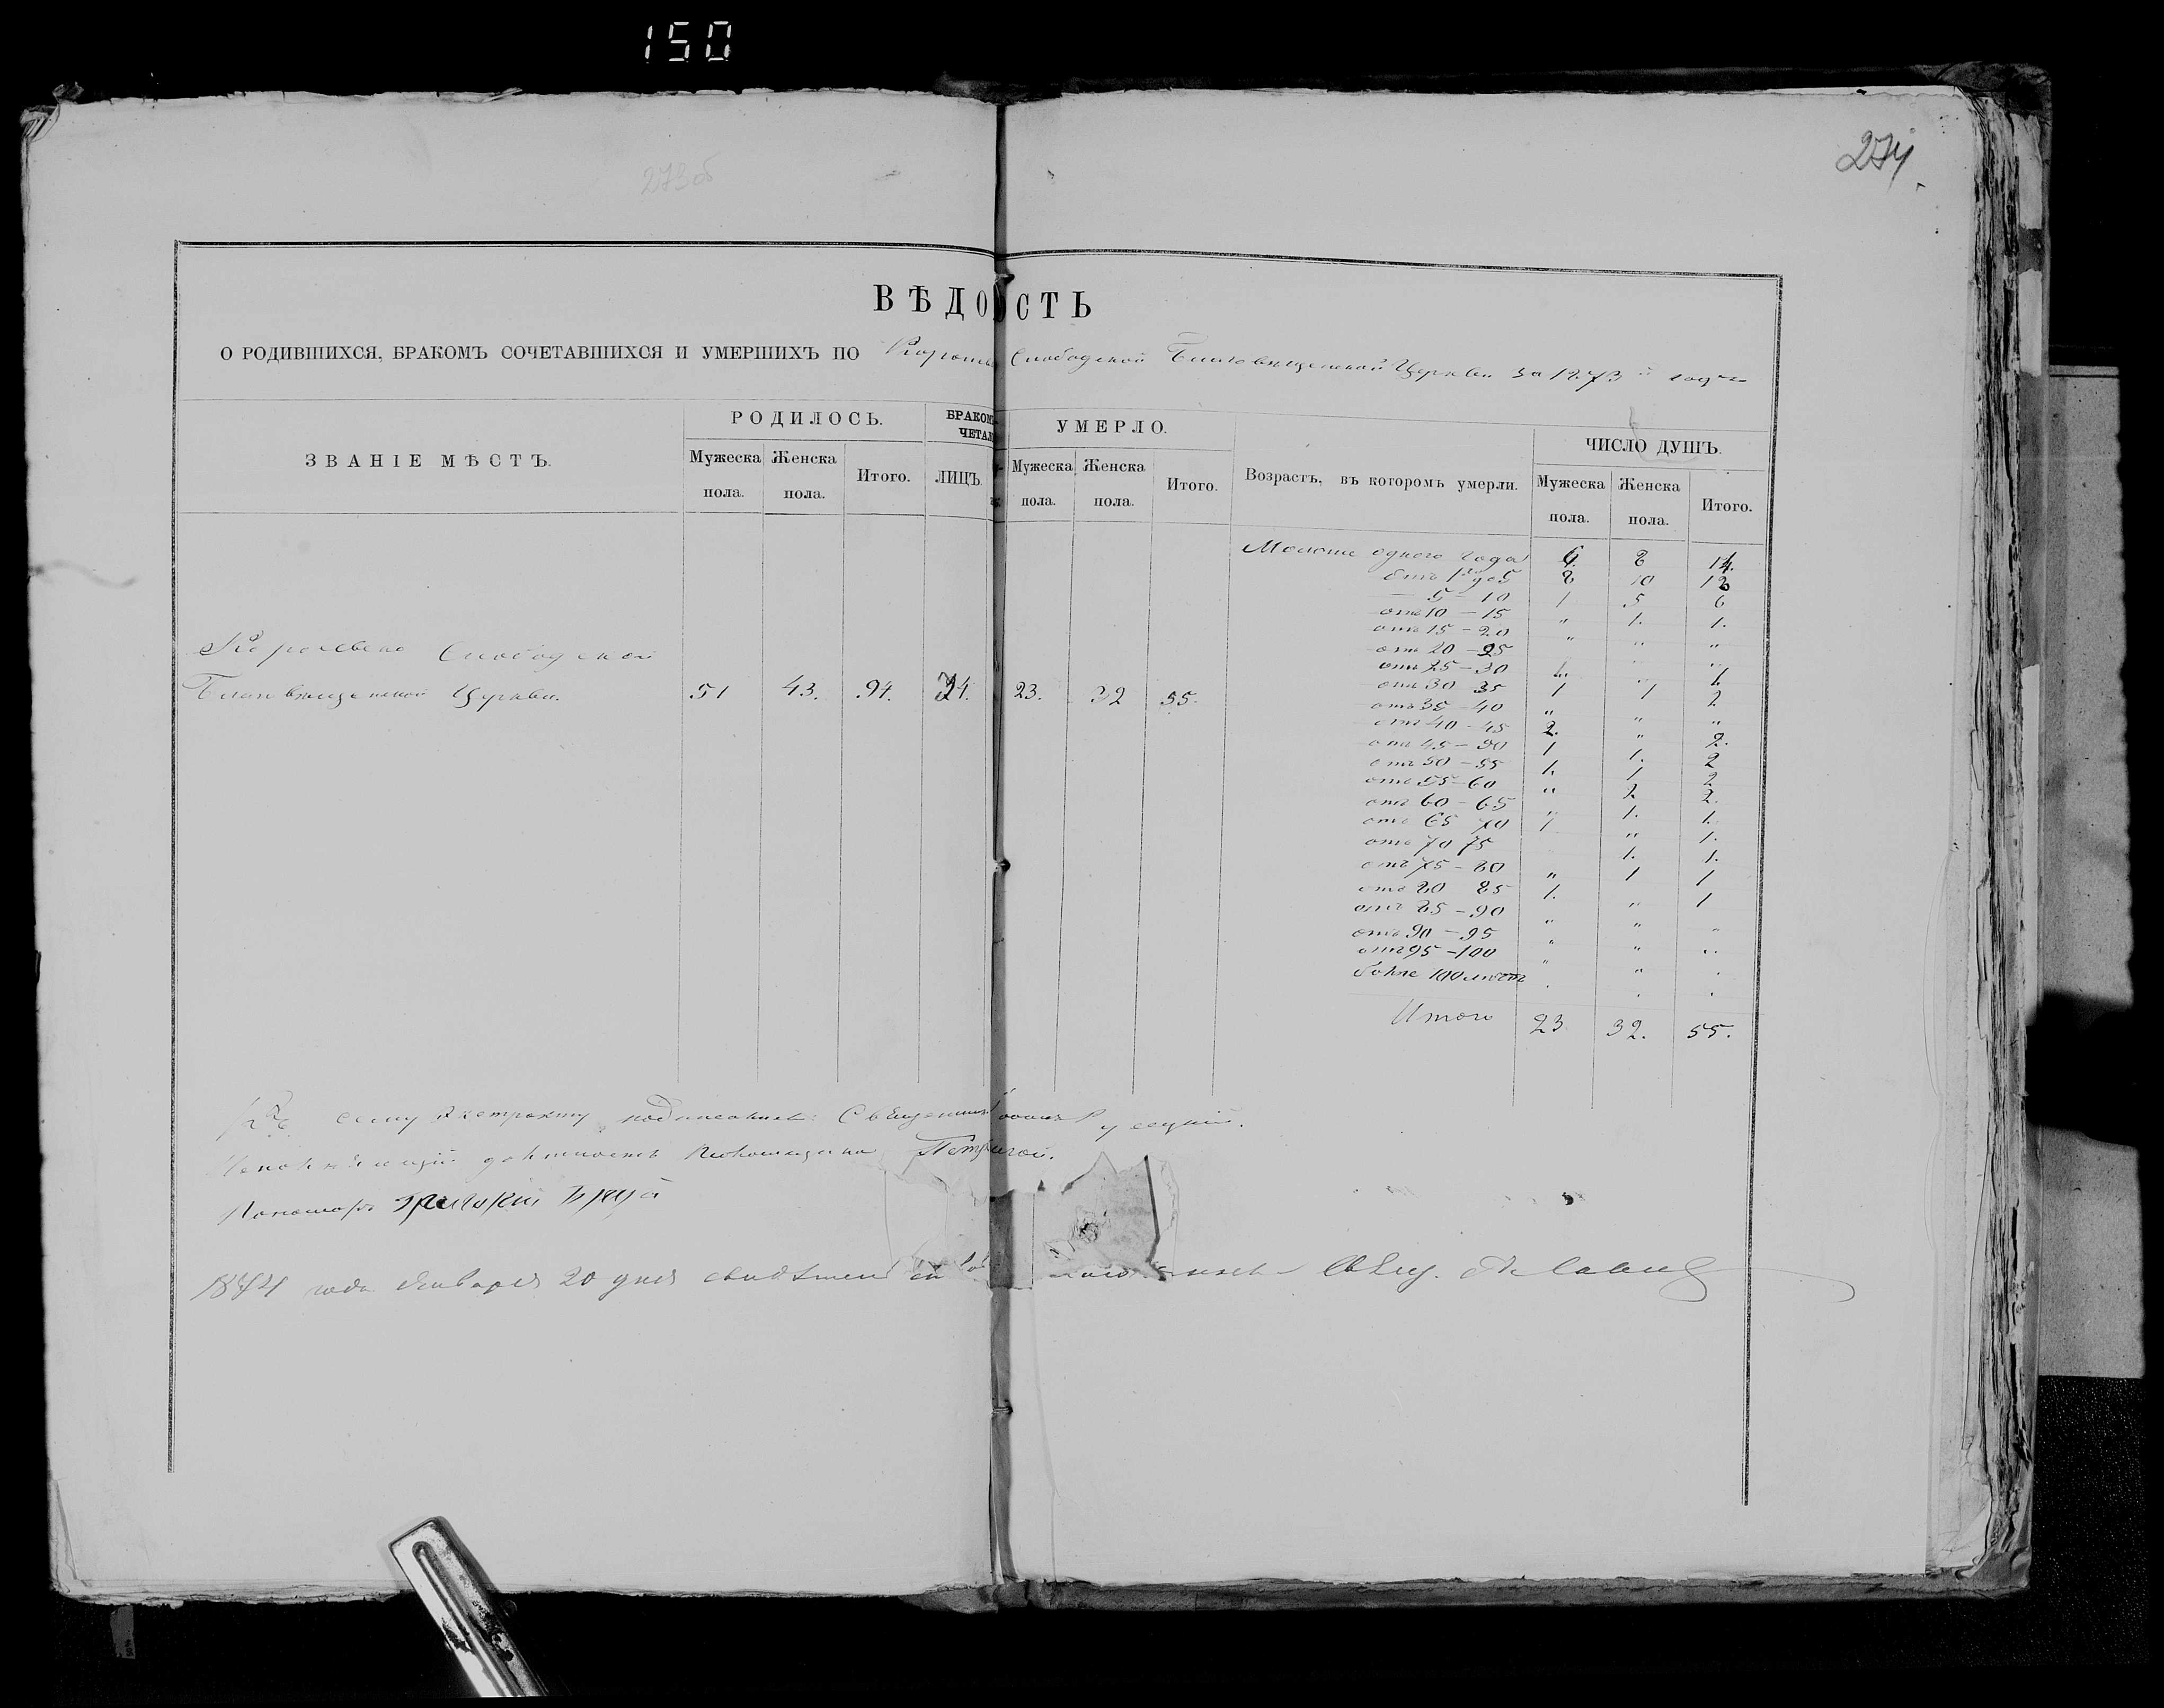 150
274
273об
ВѢДО ОСТЬ
О РОДИВШИХСЯ, БРАКОМЪ СОЧЕТАВШИХСЯ И УМЕРШИХЪ ПО Слободской Благовѣщенской Церкви за 1873 й годъ
ЗВАНІЕ МѢСТЪ. РОДИЛОСЬ. БРАКОМ ЧЕТАЛ УМЕРЛО. Возрастъ, въ которомъ умерли. ЧИСЛО ДУШЪ.
Мужеска пола. Женска пола. Итого. ЛИЦЪ. Мужеска пола. Женска пола. Итого. Мужеска пола. Женска пола. Итого.
Моложе одного года 6 8 14.
отъ 1 до 5 8 10 18
5 - 10 1 5 6
отъ 10 - 15 " 1. 1.
отъ 15 - 20 " " "
отъ 20 - 25 "
отъ 25 - 30 1. " 1.
отъ 30 35 1 1 2
отъ 35 - 40 " " "
отъ 40 - 45 2. " 2.
отъ 45 - 50 1 1. 2
отъ 50 - 55 1. 1 2
отъ 55 - 60 " 2 2.
отъ 60 - 65 " 1. 1.
отъ 65 70 1 " 1.
отъ 70 75 1. 1.
отъ 75 - 80 " 1 1
отъ 80 85 1. " 1
отъ 85 - 90 " " "
отъ 90 - 95 " " "
отъ 95 - 100 " "
болѣе 100 лѣтъ
Итого 23 32. 55.
Королевско Слободской
Благовѣщенской Церкви. 51 43. 94. 23. 32 55.
Къ сему экстракту подписались: Священникъ
Исполняющій должность Псаломщика
Пономарь Григорій
1874 года Января 20 дня Свящ.